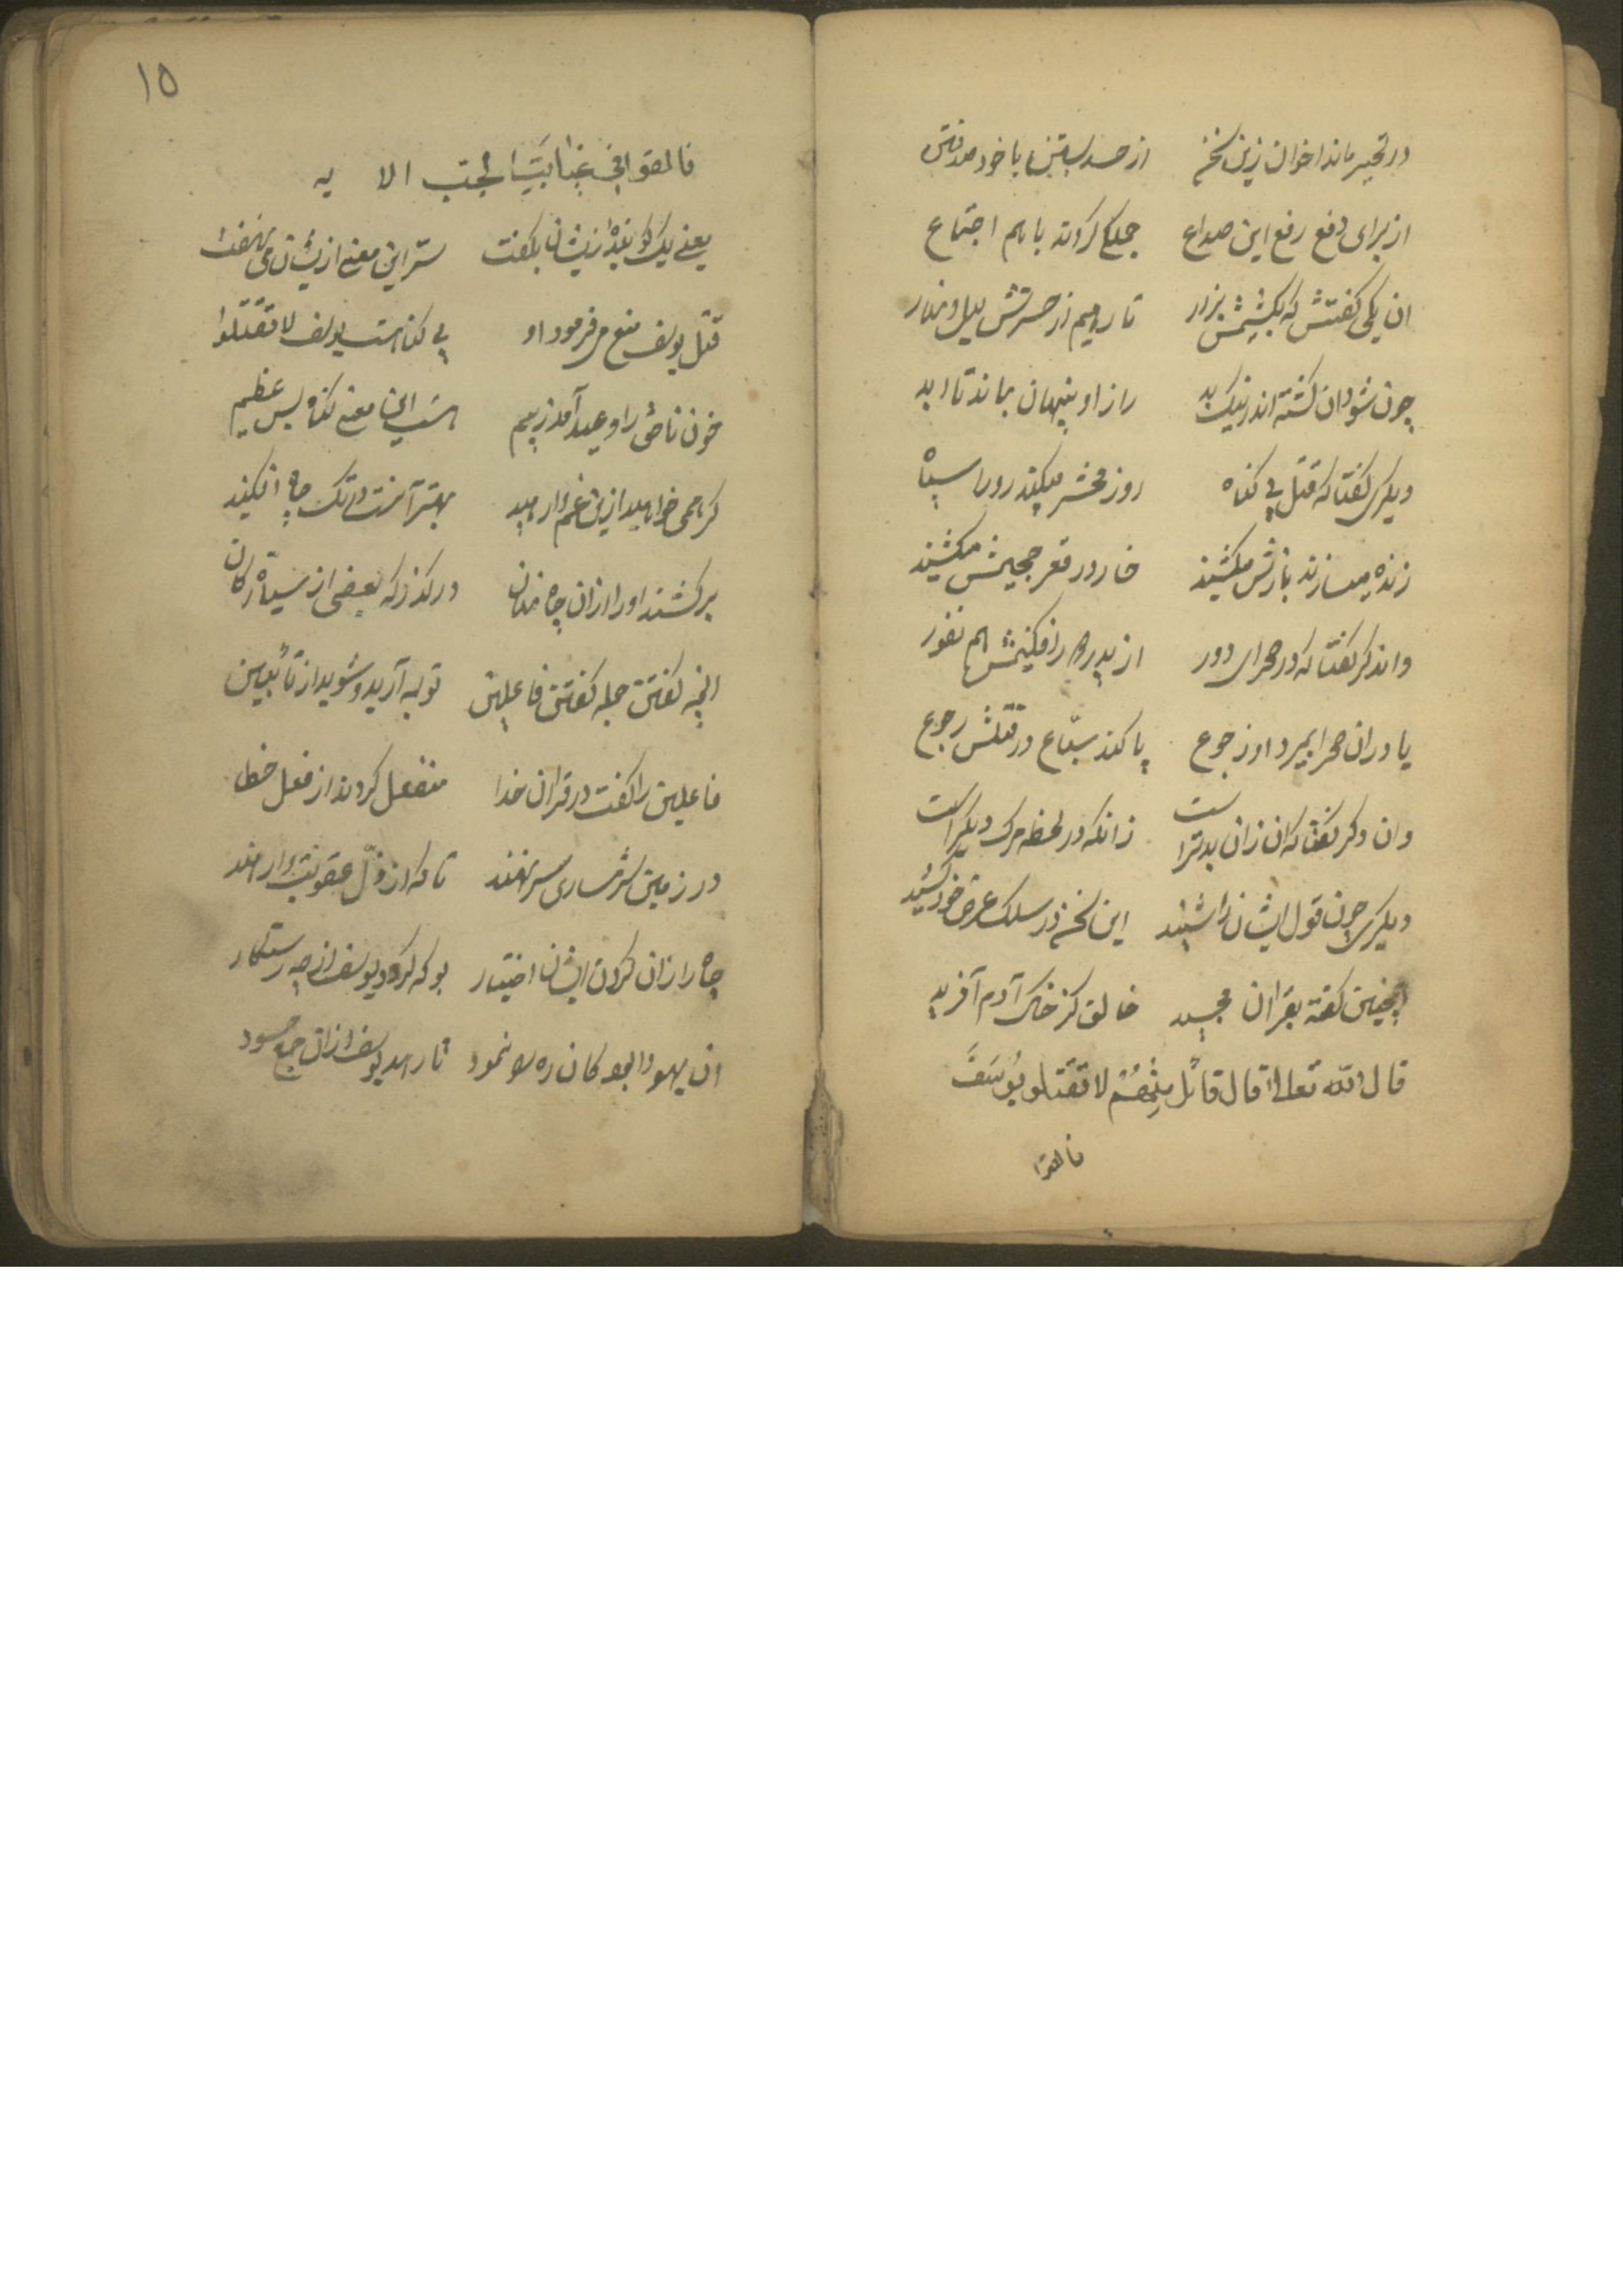 در تحیر ماند اخوان زین سخن از حسد بستند با خود
از برای دفع رفع این صداع جملگی کردند با هم اجتماع
ان یکی گفتش که بکشیمش بزور تا رهیم از حسرتش لیل و نهار
چون شود ان کشته اندر نیک بد راز او پنهان بماند تا ابد
دیگری گفتا که قتل بی گناه روز محشر میکند رورا سیاه
زنده میسازند بازش میکشند خار در قعر جحیمش میکشند
واندگر گفتا که در صحرای دور از پدر افکنیمش هم نفور
یا در ان صحرا بمیرد او ز جوع یا کند سبّاع در قتلش رجوع
وان دگر گفتا که ان زان بدتر است زانکه در لحظه مرگ دیگر است
دیگری چون قول ایشان را شنید این سخن در سلک عرض خود کشید
اینچنین گفته بقران مجید خالق کز خاک آدم آفرید
قال الله تعالی قال قائل منهم لا تقتلو یوسف
فالقوا
۱۵
فالقوا فی غیابت الجب الا یه
یعنی یک گوینده زیشان بگفت ستر این معنی ازیشان می نهفت
قتل یوسف منع می فرمود او بی گناهست یوسف لا تقتلوا
خون ناحق را وعید آمد ز بیم هست این معنی گناه بس عظیم
گر همی خواهید ازین غم وارهید بهتر آنست در تک چاه افکنید
برکشند او را ازان چاه نهان در گذر که بعضی از سیاره کان
انچه گفتن جمله گفتن فاعلین توبه آرید و شوید از تائبین
فاعلین را گفت در قران خدا منفعل کردند از فعل خطا
در زمین شرمساری سر نهند تا که از ذلّ عقوبت وارهند
چاه را زان کردن ایشان اختیار بو که گردد یوسف از چه رستگار
ان یهودا بود کان ره را نمود تا رهد یوسف ازان جمع حسود